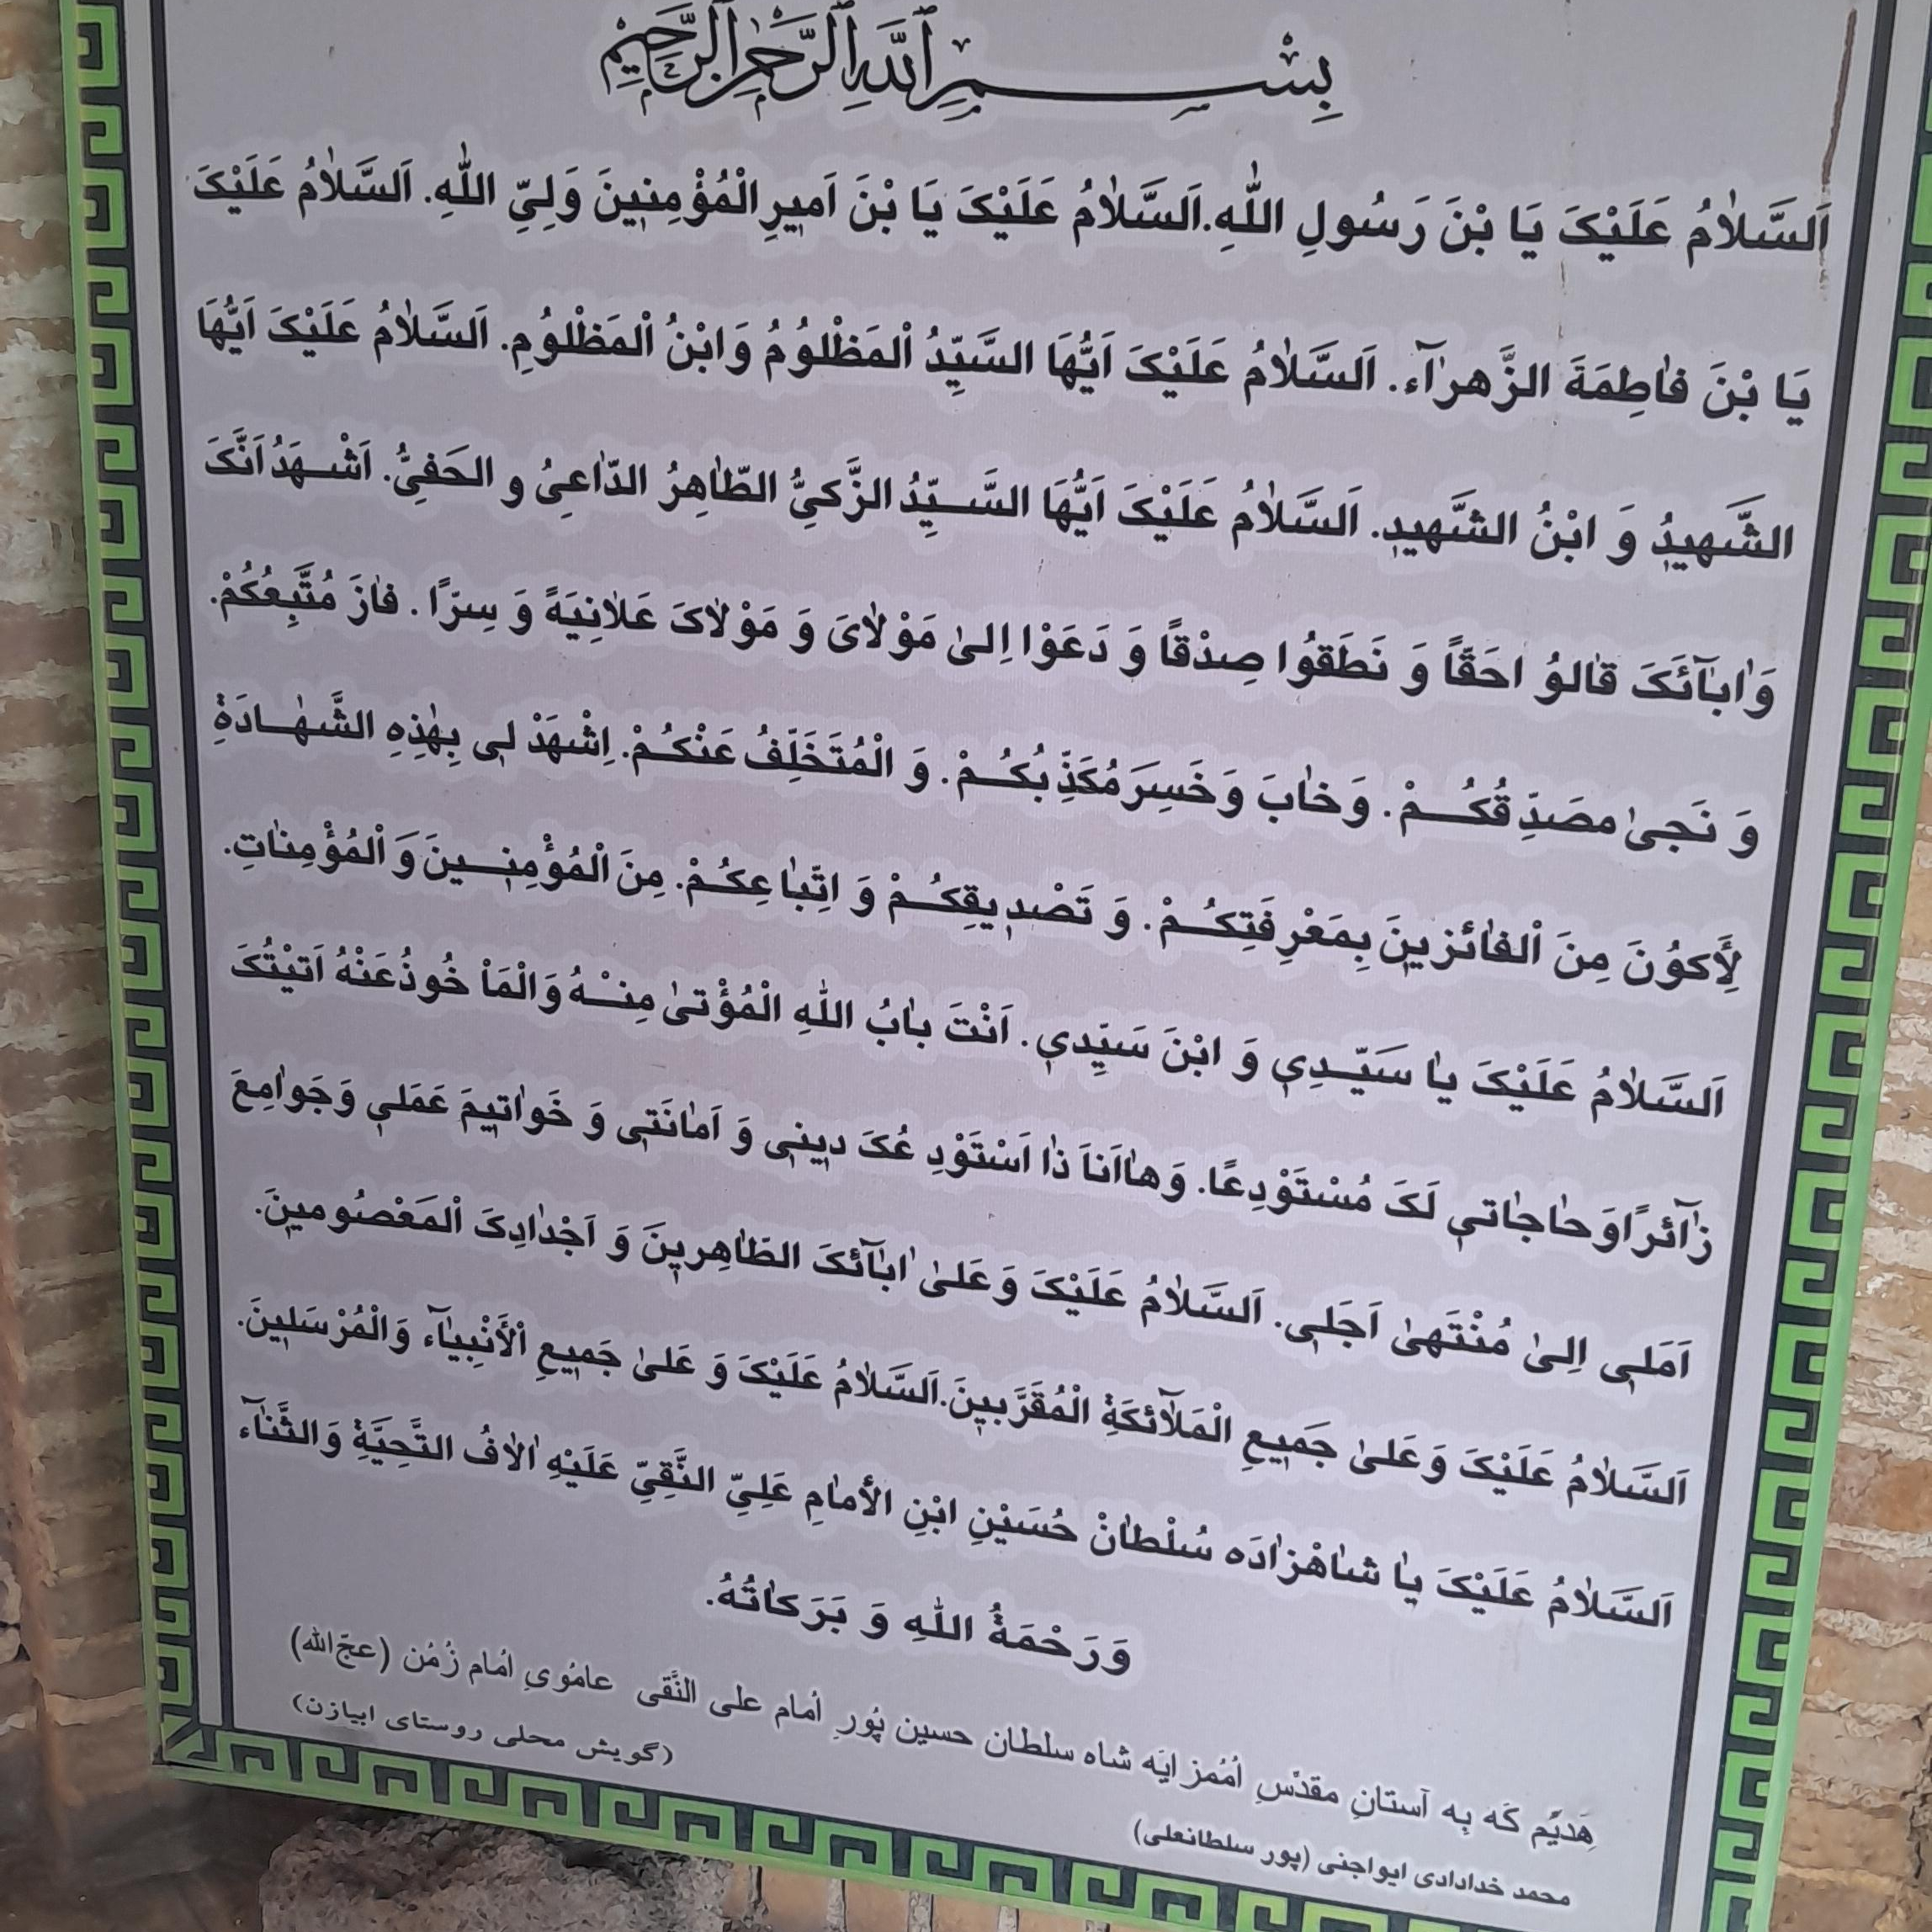 بِسْمِ اللَّهِ الرَّحْمٰنِ الرَّحِیْمِ
اَلسَّلاٰمُ عَلَیْکَ یَا بْنَ رَسُولِ اللّٰهِ.اَلسَّلاٰمُ عَلَیْکَ یَا بْنَ اَمیرِ الْمُؤْمِنینَ وَلِیِّ اللّٰهِ. اَلسَّلاٰمُ عَلَیْکَ
یَا بْنَ فاٰطِمَةَ الزَّهرٰآء. اَلسَّلاٰمُ عَلَیْکَ اَیُّهَا السَّیِّدُ اْلمَظْلوُمُ وَابْنُ اْلمَظْلوُمِ. اَلسَّلاٰمُ عَلَیْکَ اَیُّهَا
الشَّهیدُ وَ ابْنُ الشَّهیدِ. اَلسَّلاٰمُ عَلَیْکَ اَیُّهَا السَّیِّدُ الزَّکیُّ الطّاٰهِرُ الدّاٰعیُ و الحَفیُّ. اَشْهَدُ اَنَّکَ
وَاٰبآٰئَکَ قاٰلوُ احَقّاً وَ نَطَقوُا صِدْقاً وَ دَعَوْا اِلیٰ مَوْلاٰیَ وَ مَوْلاٰکَ عَلاٰنِیَةً وَ سِرّاً . فاٰزَ مُتَّبِعُکُمْ.
وَ نَجیٰ مصَدِّقُکُمْ. وَخاٰبَ وَخَسِرَ مُکَذِّبُکُمْ. وَ الْمُتَخَلِّفُ عَنْکُمْ. اِشْهَدْ لی بِهٰذِهِ الشَّهٰادَةِ
لِأَکوُنَ مِنَ اْلفاٰئزینَ بِمَعْرِفَتِکُمْ. وَ تَصْدیقِکُمْ وَ اتِّباٰعِکُمْ. مِنَ الْمُؤْمِنینَ وَ اْلمُؤْمِناٰتِ.
اَلسَّلاٰمُ عَلَیْکَ یاٰ سَیّدِی وَ ابْنَ سَیِّدی. اَنْتَ باٰبُ اللّٰهِ الْمُؤْتیٰ مِنْهُ وَالْمَاْ خُوذُعَنْهُ اَتَیْتُکَ
زٰآئرًاوَ حاٰجاٰتی لَکَ مُسْتَوْدِعًا. وَهاٰاَناَ ذٰا اَسْتَوْدِ عُکَ دینی وَ اَماٰنَتی وَ خَوٰاتیمَ عَمَلی وَجَوٰامِعَ
اَمَلی اِلیٰ مُنْتَهیٰ اَجَلی. اَلسَّلاٰمُ عَلَیْکَ وَ عَلیٰ اٰبآٰئکَ الطّاٰهِرینَ وَ اَجْدٰادِکَ اْلمَعْصوُمینَ.
اَلسَّلاٰمُ عَلَیْکَ وَ عَلیٰ جَمیعِ الْمَلآٰئکَةِ الْمُقَرَّبینَ.اَلسَّلاٰمُ عَلَیْکَ وَ عَلیٰ جَمیعِ اْلأَنْبِیآٰء وَالْمُرْسَلینَ.
اَلسَّلاٰمُ عَلَیْکَ یاٰ شاٰهْزٰادَه سُلْطاٰنْ حُسَیْنِ ابْنِ الأماٰمِ عَلِیِّ النَّقِیِّ عَلَیْهِ اٰلاٰفُ التَّحِیَّةِ وَالثَّنآٰء
وَرَحْمَةُ اللّٰهِ وَ بَرَکاٰتُهُ.
هَدیٌم کَه بِه آستانِ مقدّسِ اُمُمز ایَه شاه سلطان حسین پُورِ اُمام علی النَّقی عامُویِ امُام زُمُن (عجّ الله)
(گویش محلی روستای ابیازن)
محمد خدادادی ایواجنی (پور سلطانعلی)